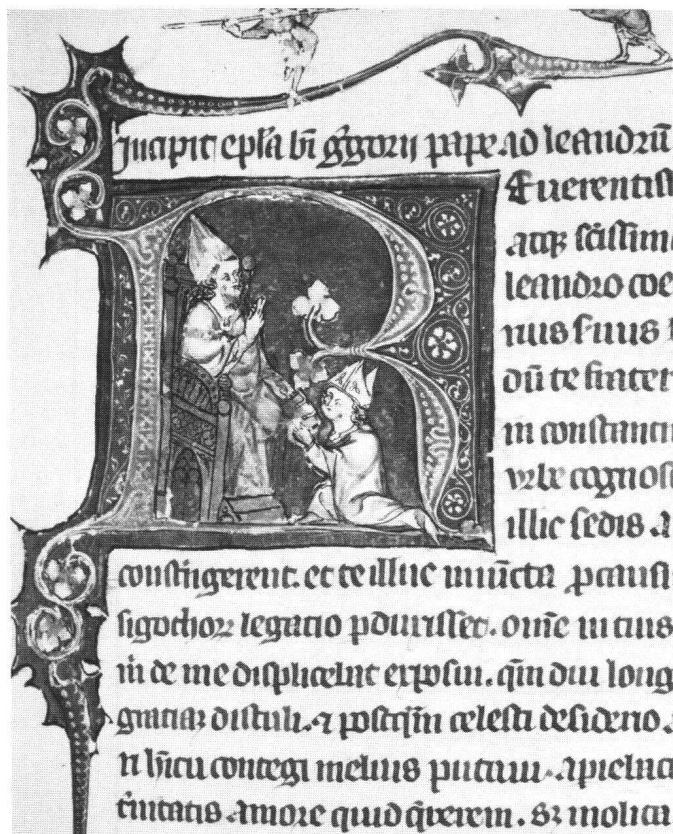 Incipit epl̄a bī ḡgorii pape ad leandrū
Euerentiss
atqꝫ sc̄issim
leandro coe
nus suus
dū te frater
in constantin
vrbe cognos
illic sedis a
constringerent. et te illuc iniūcta ꝑ causi
sigothoꝝ legatio ꝑduxisset. om̄e in tuis
m̄ de me displicebat exposui. qm̄ diu long
gratiaꝝ distuli. ⁊ postqm̄ celesti desiderio
contegi melius putaui. apiebat
t̄nitatis amore quid q̄rerem. sꝫ inolita